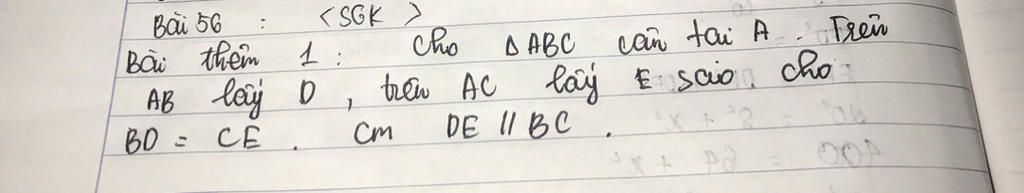 Bài 56 : <SGK>
Bài thêm 1 : Cho Δ ABC cân tại A. Trên
AB lấy D, trên AC lấy E sao cho
BD = CE. Cm DE // BC.